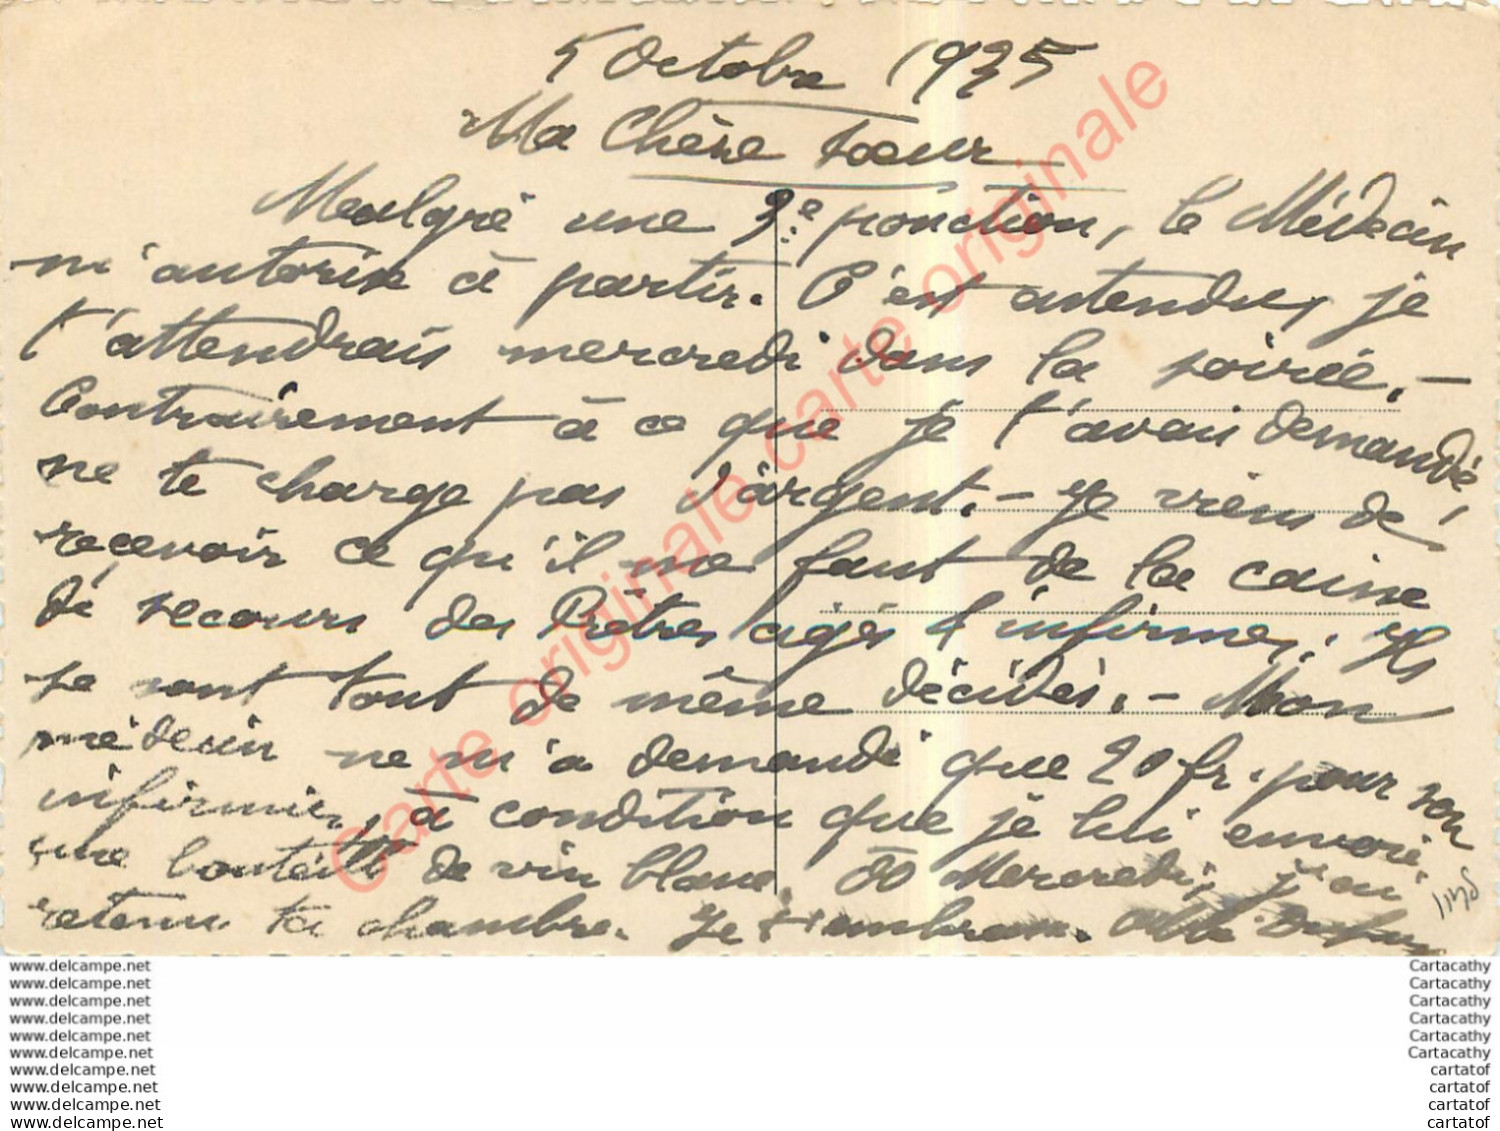 5 Octobre 1935
Ma Chère soeur
Malgré une 3e ponction, le Médecin
m'autorise à partir. C'est entendu, je
t'attendrais mercredi dans la soirée. -
Contrairement à ce que je t'avais demandé,
ne te charge pas d'argent. - Je viens de
recevoir ce qu'il me faut de la caisse
de secours des Prêtres agés & infirmes. Ils
se sont tout de même décidés. - Mon
médecin ne m'a demandé que 20 fr. pour son
infirmier, à condition que je lui envoie
une bouteille de vin blanc. Mercredi, j'ai
retenu ta chambre. Je t'embrasse. Abbé
Carte originale carte originale carte originale
www.delcampe.net
www.delcampe.net
www.delcampe.net
www.delcampe.net
www.delcampe.net
www.delcampe.net
www.delcampe.net
www.delcampe.net
www.delcampe.net
www.delcampe.net
Cartacathy
Cartacathy
Cartacathy
Cartacathy
Cartacathy
Cartacathy
cartatof
cartatof
cartatof
cartatof